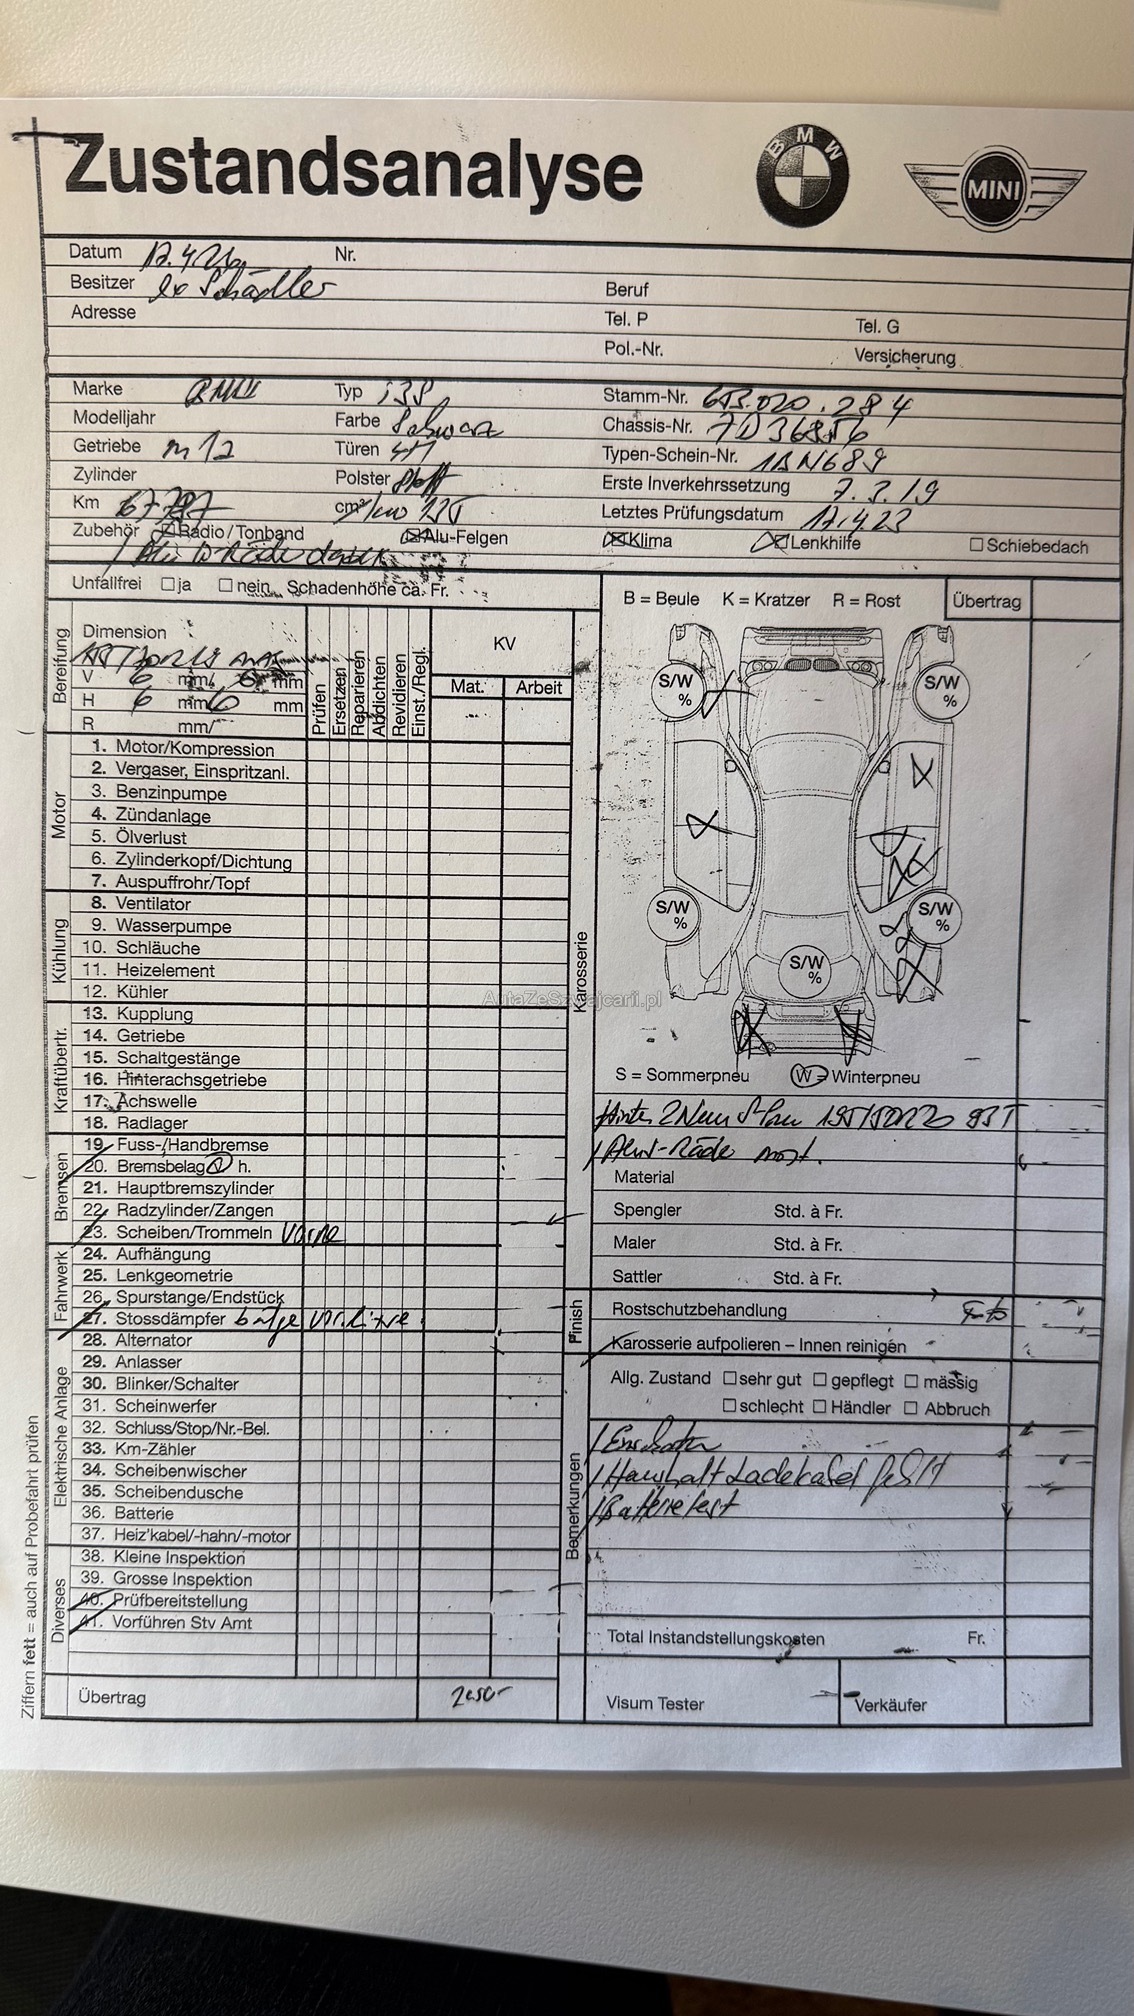 Zustandsanalyse
BMW
MINI
Datum
Nr.
Besitzer ex Schädler
Beruf
Adresse
Tel. P
Tel. G
Pol.-Nr.
Versicherung
Marke BMW
Typ i3S
Stamm-Nr. 653.020.284
Modelljahr
Farbe Schwarz
Chassis-Nr.
Getriebe
Türen
Typen-Schein-Nr.
Zylinder
Polster Stoff
Erste Inverkehrssetzung 7.3.19
Km
cm³/kw
Letztes Prüfungsdatum 17.4.23
Zubehör
Radio/Tonband
Alu-Felgen
Klima
Lenkhilfe
Schiebedach
Unfallfrei ja nein Schadenhöhe ca. Fr.
B = Beule K = Kratzer R = Rost
Übertrag
Bereifung
Dimension
V 6 mm 6 mm
H 6 mm 6 mm
R mm/
Prüfen
Ersetzen
Reparieren
Abdichten
Revidieren
Einst./Regl.
KV
Mat.
Arbeit
Motor
1. Motor/Kompression
2. Vergaser, Einspritzanl.
3. Benzinpumpe
4. Zündanlage
5. Ölverlust
6. Zylinderkopf/Dichtung
7. Auspuffrohr/Topf
Kühlung
8. Ventilator
9. Wasserpumpe
10. Schläuche
11. Heizelement
12. Kühler
Kraftübertr.
13. Kupplung
14. Getriebe
15. Schaltgestänge
16. Hinterachsgetriebe
17. Achswelle
18. Radlager
Bremsen
19. Fuss-/Handbremse
20. Bremsbelag v h.
21. Hauptbremszylinder
22. Radzylinder/Zangen
23. Scheiben/Trommeln vorne
Fahrwerk
24. Aufhängung
25. Lenkgeometrie
26. Spurstange/Endstück
27. Stossdämpfer
Elektrische Anlage
28. Alternator
29. Anlasser
30. Blinker/Schalter
31. Scheinwerfer
32. Schluss/Stop/Nr.-Bel.
33. Km-Zähler
34. Scheibenwischer
35. Scheibendusche
36. Batterie
37. Heiz'kabel/-hahn/-motor
Diverses
38. Kleine Inspektion
39. Grosse Inspektion
40. Prüfbereitstellung
41. Vorführen Stv Amt
Übertrag
Ziffern fett = auch auf Probefahrt prüfen
Karosserie
S/W %
S/W %
S/W %
S/W %
S/W %
AutaZeSzwajcarii.pl
S = Sommerpneu W = Winterpneu
Material
Spengler Std. à Fr.
Maler Std. à Fr.
Sattler Std. à Fr.
Finish
Rostschutzbehandlung
Karosserie aufpolieren – Innen reinigen
Allg. Zustand sehr gut gepflegt mässig
schlecht Händler Abbruch
Bemerkungen
Haushalt Ladekabel
Batterietest
Total Instandstellungskosten Fr.
Visum Tester
Verkäufer